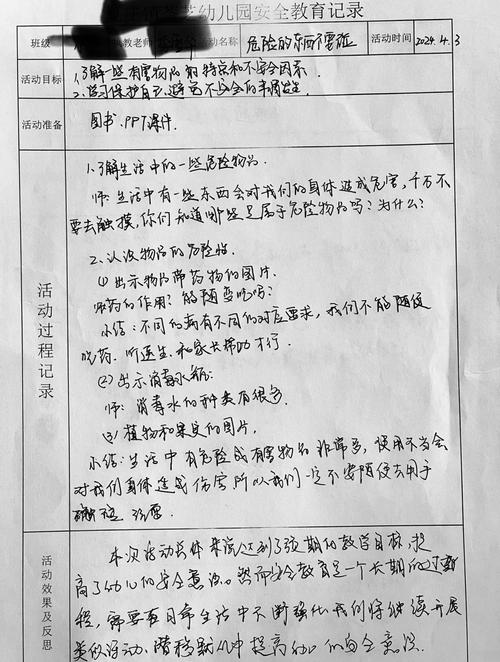 幼儿园安全教育记录
班级 教老师 活动名称 危险的东西不要碰 活动时间 2024.4.3
活动目标 1.了解一些有害物品的特点和不安全因素.
2.学习保护自己,避免不安全的事情发生.
活动准备 图书.PPT课件.
活动过程记录
1.了解生活中的一些危险物品.
师:生活中有一些东西会对我们的身体造成危害,千万不
要去触摸,你们知道哪些是属于危险物品吗?为什么?
2.认识物品的危险性.
(1)出示物品带药物的图片.
师药的作用?能随便吃吗?
小结:不同的病有不同的对应要求,我们不能随便
吃药.听医生和家长帮助才行.
(2)出示消毒水瓶:
师:消毒水的种类有很多.
(3)植物和果皮的图片.
小结:生活中有危险或有害物品非常多,使用不当会
对我们身体造成伤害所以我们一定不要随便去用手
触碰
活动效果及反思
本次活动总体来说达到了预期的教学目标,提
高了幼儿的安全意识.然而安全教育是一个长期的过
程,需要在日常生活中不断强化我们将继续开展
类似活动.潜移默化中提高幼儿的安全意识.